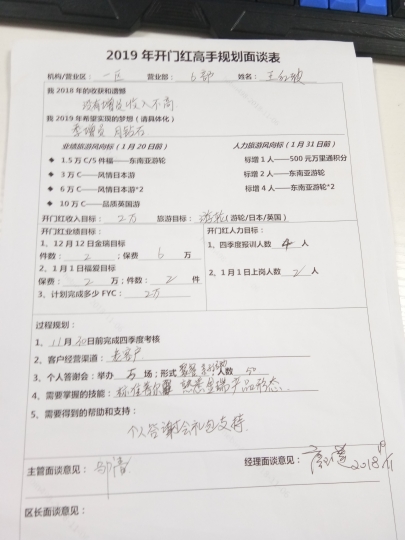 2019 年开门红高手规划面谈表
机构/营业区： 一区 营业部： 6部 姓名：
我 2018 年的收获和遗憾
没有增员 收入不高
我 2019 年希望实现的梦想（请具体化）
业绩旅游风向标（1 月 20 日前） 人力旅游风向标（1 月 31 日前）
◆ 1.5 万 C/5 件福——东南亚游轮 标增 1 人——500 元万里通积分
◆ 3 万 C——风情日本游 标增 2 人——东南亚游轮
◆ 6 万 C——风情日本游*2 标增 4 人——东南亚游轮*2
◆ 10 万 C——品质英国游
开门红收入目标： 2万 旅游目标： 游轮（游轮/日本/英国）
开门红业绩目标： 开门红人力目标：
1、12 月 12 日金瑞目标 1、四季度报训人数 4 人
件数： 2 ；保费 6 万
2、1 月 1 日福爱目标 2、1 月 1 日上岗人数 2 人
保费： 2 万；件数： 2 件
3、计划完成多少 FYC： 2万
过程规划：
1、 11月30日前完成四季度考核
2、客户经营渠道： 老客户
3、个人答谢会：举办 场；形式 人数 50
4、需要掌握的技能： 产品形态.
5、需要得到的帮助和支持：
个人答谢会礼包支持.
主管面谈意见： 经理面谈意见：
2018.11
区长面谈意见：